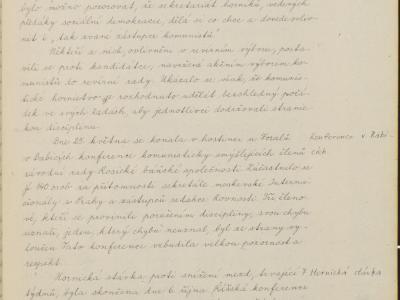 bylo možno pozorovat, že sekretariát horníků, vedených
předáky sociální demokracie, dělá si co chce a dovede ovliv-
nit i „tak zvané zástupce komunistů."
Někteří z nich, ovlivněni v revírním výboru, posta-
vili se proti kandidátce, navržené akčním výborem ko-
munistů do revírní rady. Ukázalo se však, že komunis-
tické hornictvo je rozhodnuto udělat bezohledný pořá-
dek ve svých řadách, aby jednotlivci dodržovali stranic-
kou disciplinu.
Dne 25. května se konala v hostinci u
v Babicích konference komunisticky smýšlejících členů
závodní rady Rosické báňské společnosti. Zúčastnilo se
jí 140 osob za přítomnosti sekretáře moskevské Interna-
cionály z Prahy a zástupců redakce Rovnosti. Tři členo-
vé, kteří se provinili porušením discipliny, svou chybu
uznali, jeden, který chybu neuznal, byl ze strany vy-
loučen. Tato konference vzbudila velkou pozornost a
respekt.
Hornická stávka proti snížení mezd, trvající 7
týdnů, byla skončena dne 6. října. Říšská konference
Konference v Babi-
cích
Hornická stávka